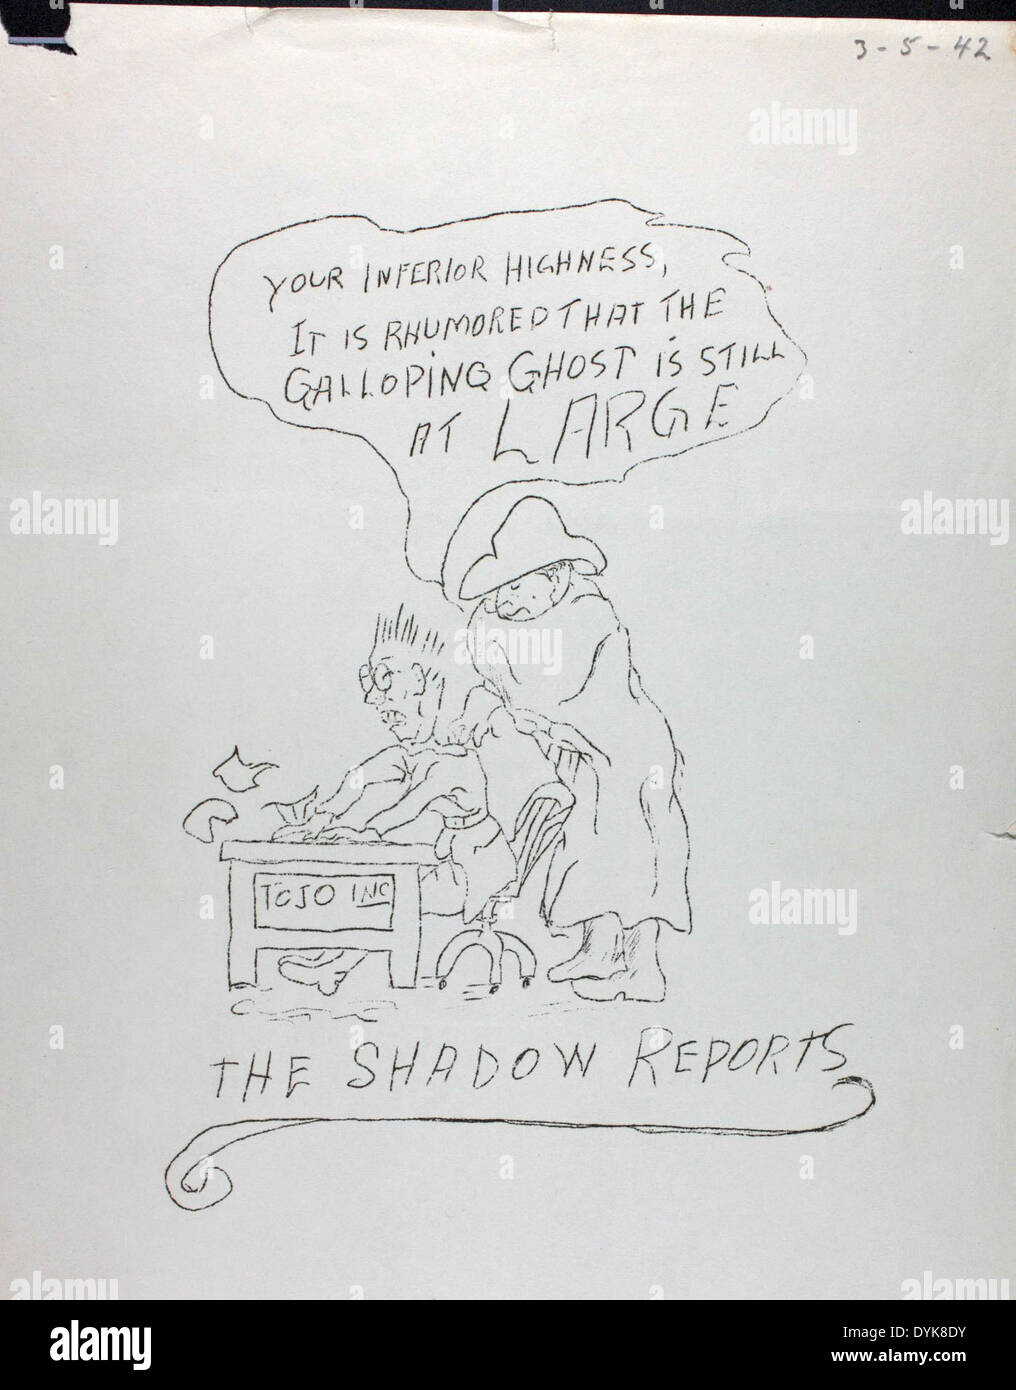 3-5-42
YOUR INFERIOR HIGHNESS,
IT IS RHUMORED THAT THE
GALLOPING GHOST IS STILL
AT LARGE
TOJO INC
THE SHADOW REPORTS
alamy
alamy
alamy
alamy
alamy
alamy
alamy
a
a
a
a
a
a
alamy
Image ID: DYK8DY
www.alamy.com